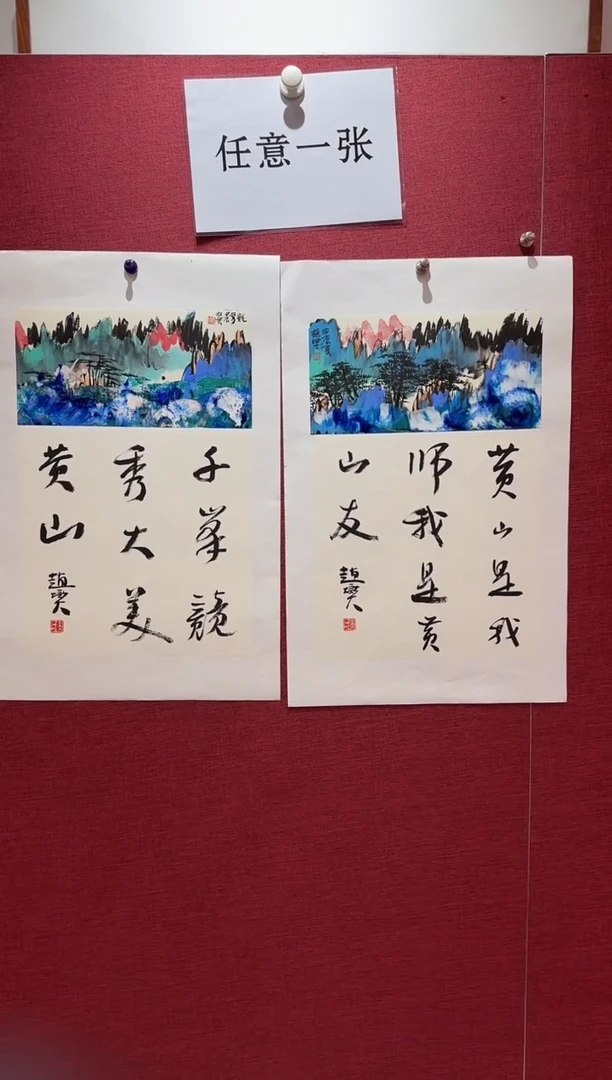 任意一张
千峯競
秀大美
黄山
趙
黄山是我
师我是黄
山友
趙